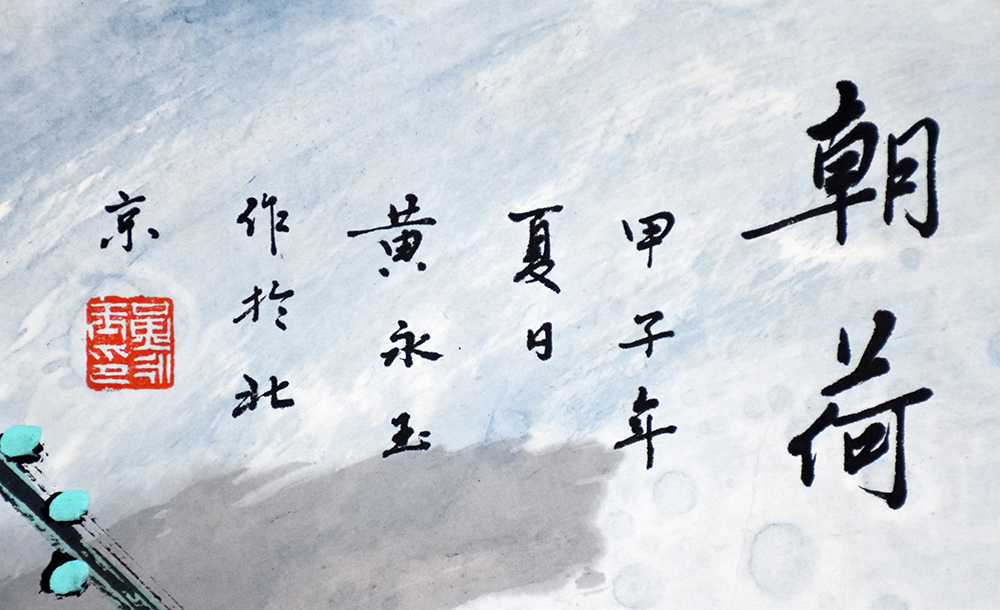 朝荷
甲子年
夏日
黄永玉
作於北
京